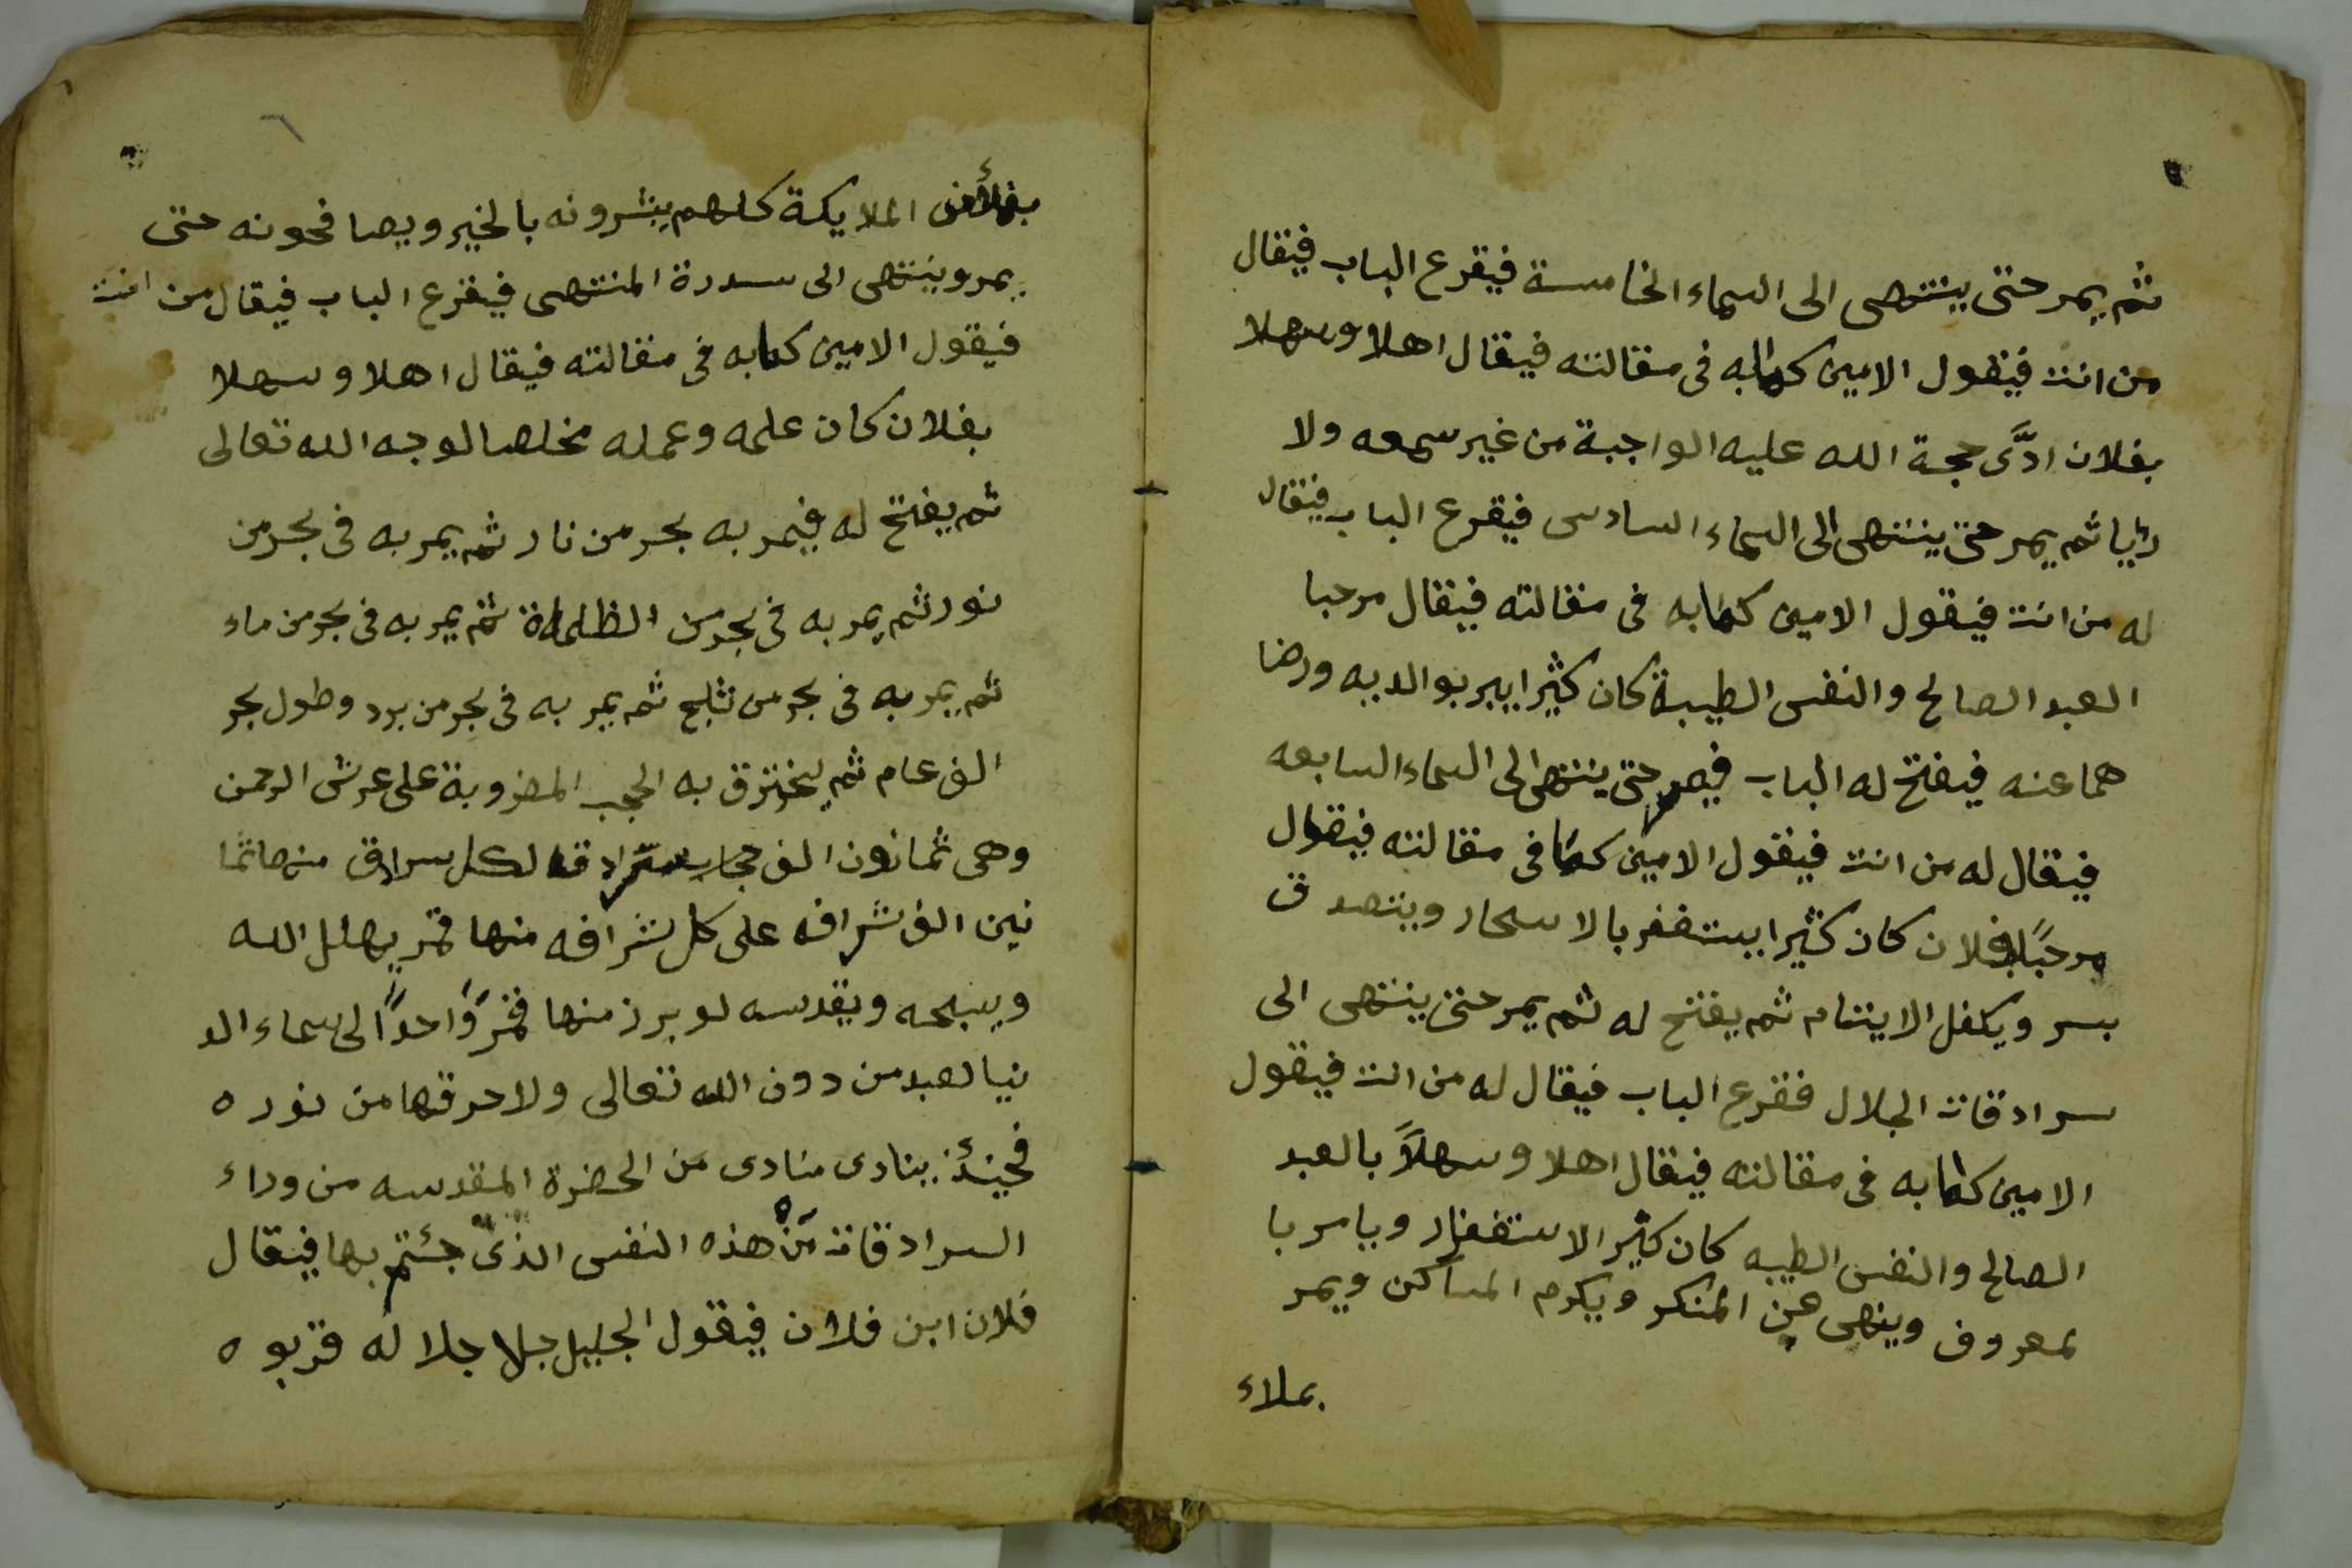 ثم يمر حتى ينتهى الى السماء الخامسة فيقرع الباب فيقال
من انت فيقول الامين كدابه فى مقالته فيقال اهلا وسهلا
بفلان ادَّى حجة الله عليه الواجبة من غير سمعه ولا
رايا ثم يمر حتى ينتهى الى السماء السادسى فيقرع الباب فيقال
له من انت فيقول الامين كدابه فى مقالته فيقال مرحبا
العبد الصالح والنفس الطيبة كان كثيرا يبر بوالديه ورضا
هما عنه فيفتح له الباب فيمر حتى ينتهى الى السماء السابعه
فيقال له من انت فيقول الامين كما فى مقالته فيقول
مرحبًا بفلان كان كثيرا يستغفر بالاسحار ويتصدق
بسر ويكفل الايتام ثم يفتح له ثم يمر حتى ينتهى الى
سرادقات الجلال فقرع الباب فيقال له من انت فيقول
الامين كدابه فى مقالته فيقال اهلا وسهلاً بالعبد
الصالح والنفس الطيبه كان كثير الاستغفار ويامر با
لمعروف وينهى عن المنكر ويكرم المساكن ويمر
بملاء
٦
الملايكة كلهم يبشرونه بالخير ويصافحونه حتى
يمر وينتهى الى سدرة المنتهى فيقرع الباب فيقال من انت
فيقول الامين كدابه فى مقالته فيقال اهلا وسهلا
بفلان كان علمه وعمله مخلصا لوجه الله تعالى
ثم يفتح له فيمر به بحر من نار ثم يمر به فى بحر من
نور ثم يمر به فى بحر من الظلمة ثم يمر به فى بحر من ماء
ثم يمر به فى بحر من ثلج ثم يمر به فى بحر من برد وطول بحر
الف عام ثم يخترق به الحجب المضروبة على عرش الرحمن
وهى ثمانون الف حجاب سرادقه لكل سرادق منها ثما
نين الف شرافه على كل شرافه منها قمر يهلل الله
ويسبحه ويقدسه لو برز منها قمرًا واحدًا الى سماء الد
نيا لعبد من دون الله تعالى ولاحرقها من نوره
فحينئذ ينادى منادى من الحضرة المقدسه من وراء
السرادقات من هذه النفس الذى جئتم بها فيقال
فلان ابن فلان فيقول الجليل جلا جلاله قربوه